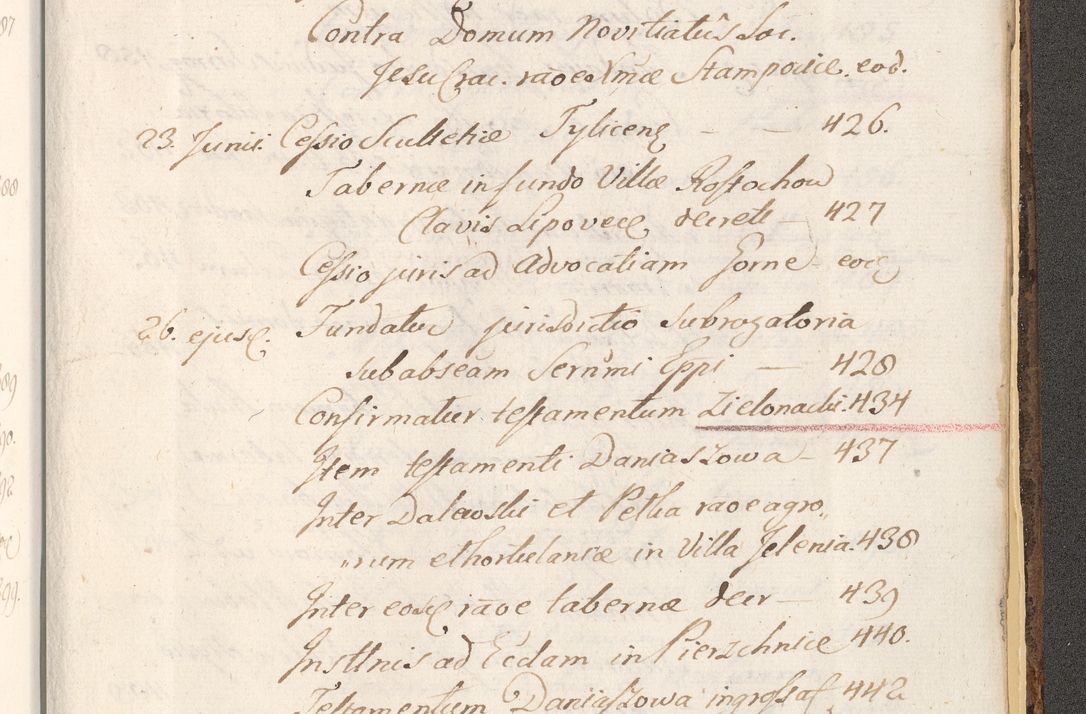 Contra Domum Novitiatûs Soc.
Jesu Crac. raoe Vinæ Stampocice. eod.
23. Junii. Cessio Scultetiæ Tyliceng — — 426.
Tabernæ in fundo Villæ Rostochow
Clavis Lipovece decreti — 427
Cessio juris ad Advocatiam Gorne eode
26. ejusd. Fundatur jurisdictio subrogatoria
sub absēam Serūmi Eppi — 428
Confirmatur testamentum Zielonacki. 434
Item testamenti Daniaszowa — 437
Inter Dalewski et Pelka raoe agro„
„rum et hortulaniæ in Villa Jelenia. 438
Inter eosd rāoe tabernæ decr — 439
Insttnis ad Ecclam in Pierzchnice 440.
Testamentum Daniaszowa ingrossat 442